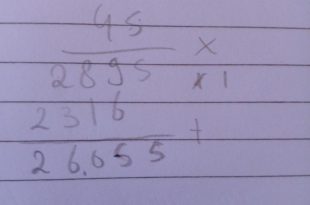 45
×
2895
×1
2316
+
26.055